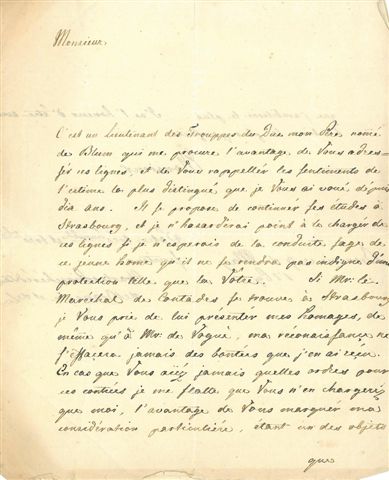 Monsieur
C'est un Lieutenant des Trouppes du Duc mon Pere nomé
de Blum qui me procure l'avantage de Vous adres-
ser ces lignes et de Vous rappeller les sentiments de
l'estime la plus distingué, que je Vous ai voué depuis
dix ans. Il se propose de continuer ses études à
Strasbourg, et je n'hasarderai point à le charger de
ces lignes si je n'esperais de la conduite sage de
ce jeune homme qu'il ne se rendra pas indigne d'une
protection telle que la Vôtre. Si Mr: le
Marechal de Contades se trouve à Strasbourg
je Vous prie de lui présenter mes homages, de
même qu'à Mr: de Vogüé, ma réconaissance ne
s'éffacera jamais des bontées que j'en ai reçue.
En cas que Vous aïez jamais quelles ordres pour
ces contrées je me flatte que Vous n'en chargeriez
que moi, l'avantage de Vous marquer ma
considération particuliére, étant un des objets
que